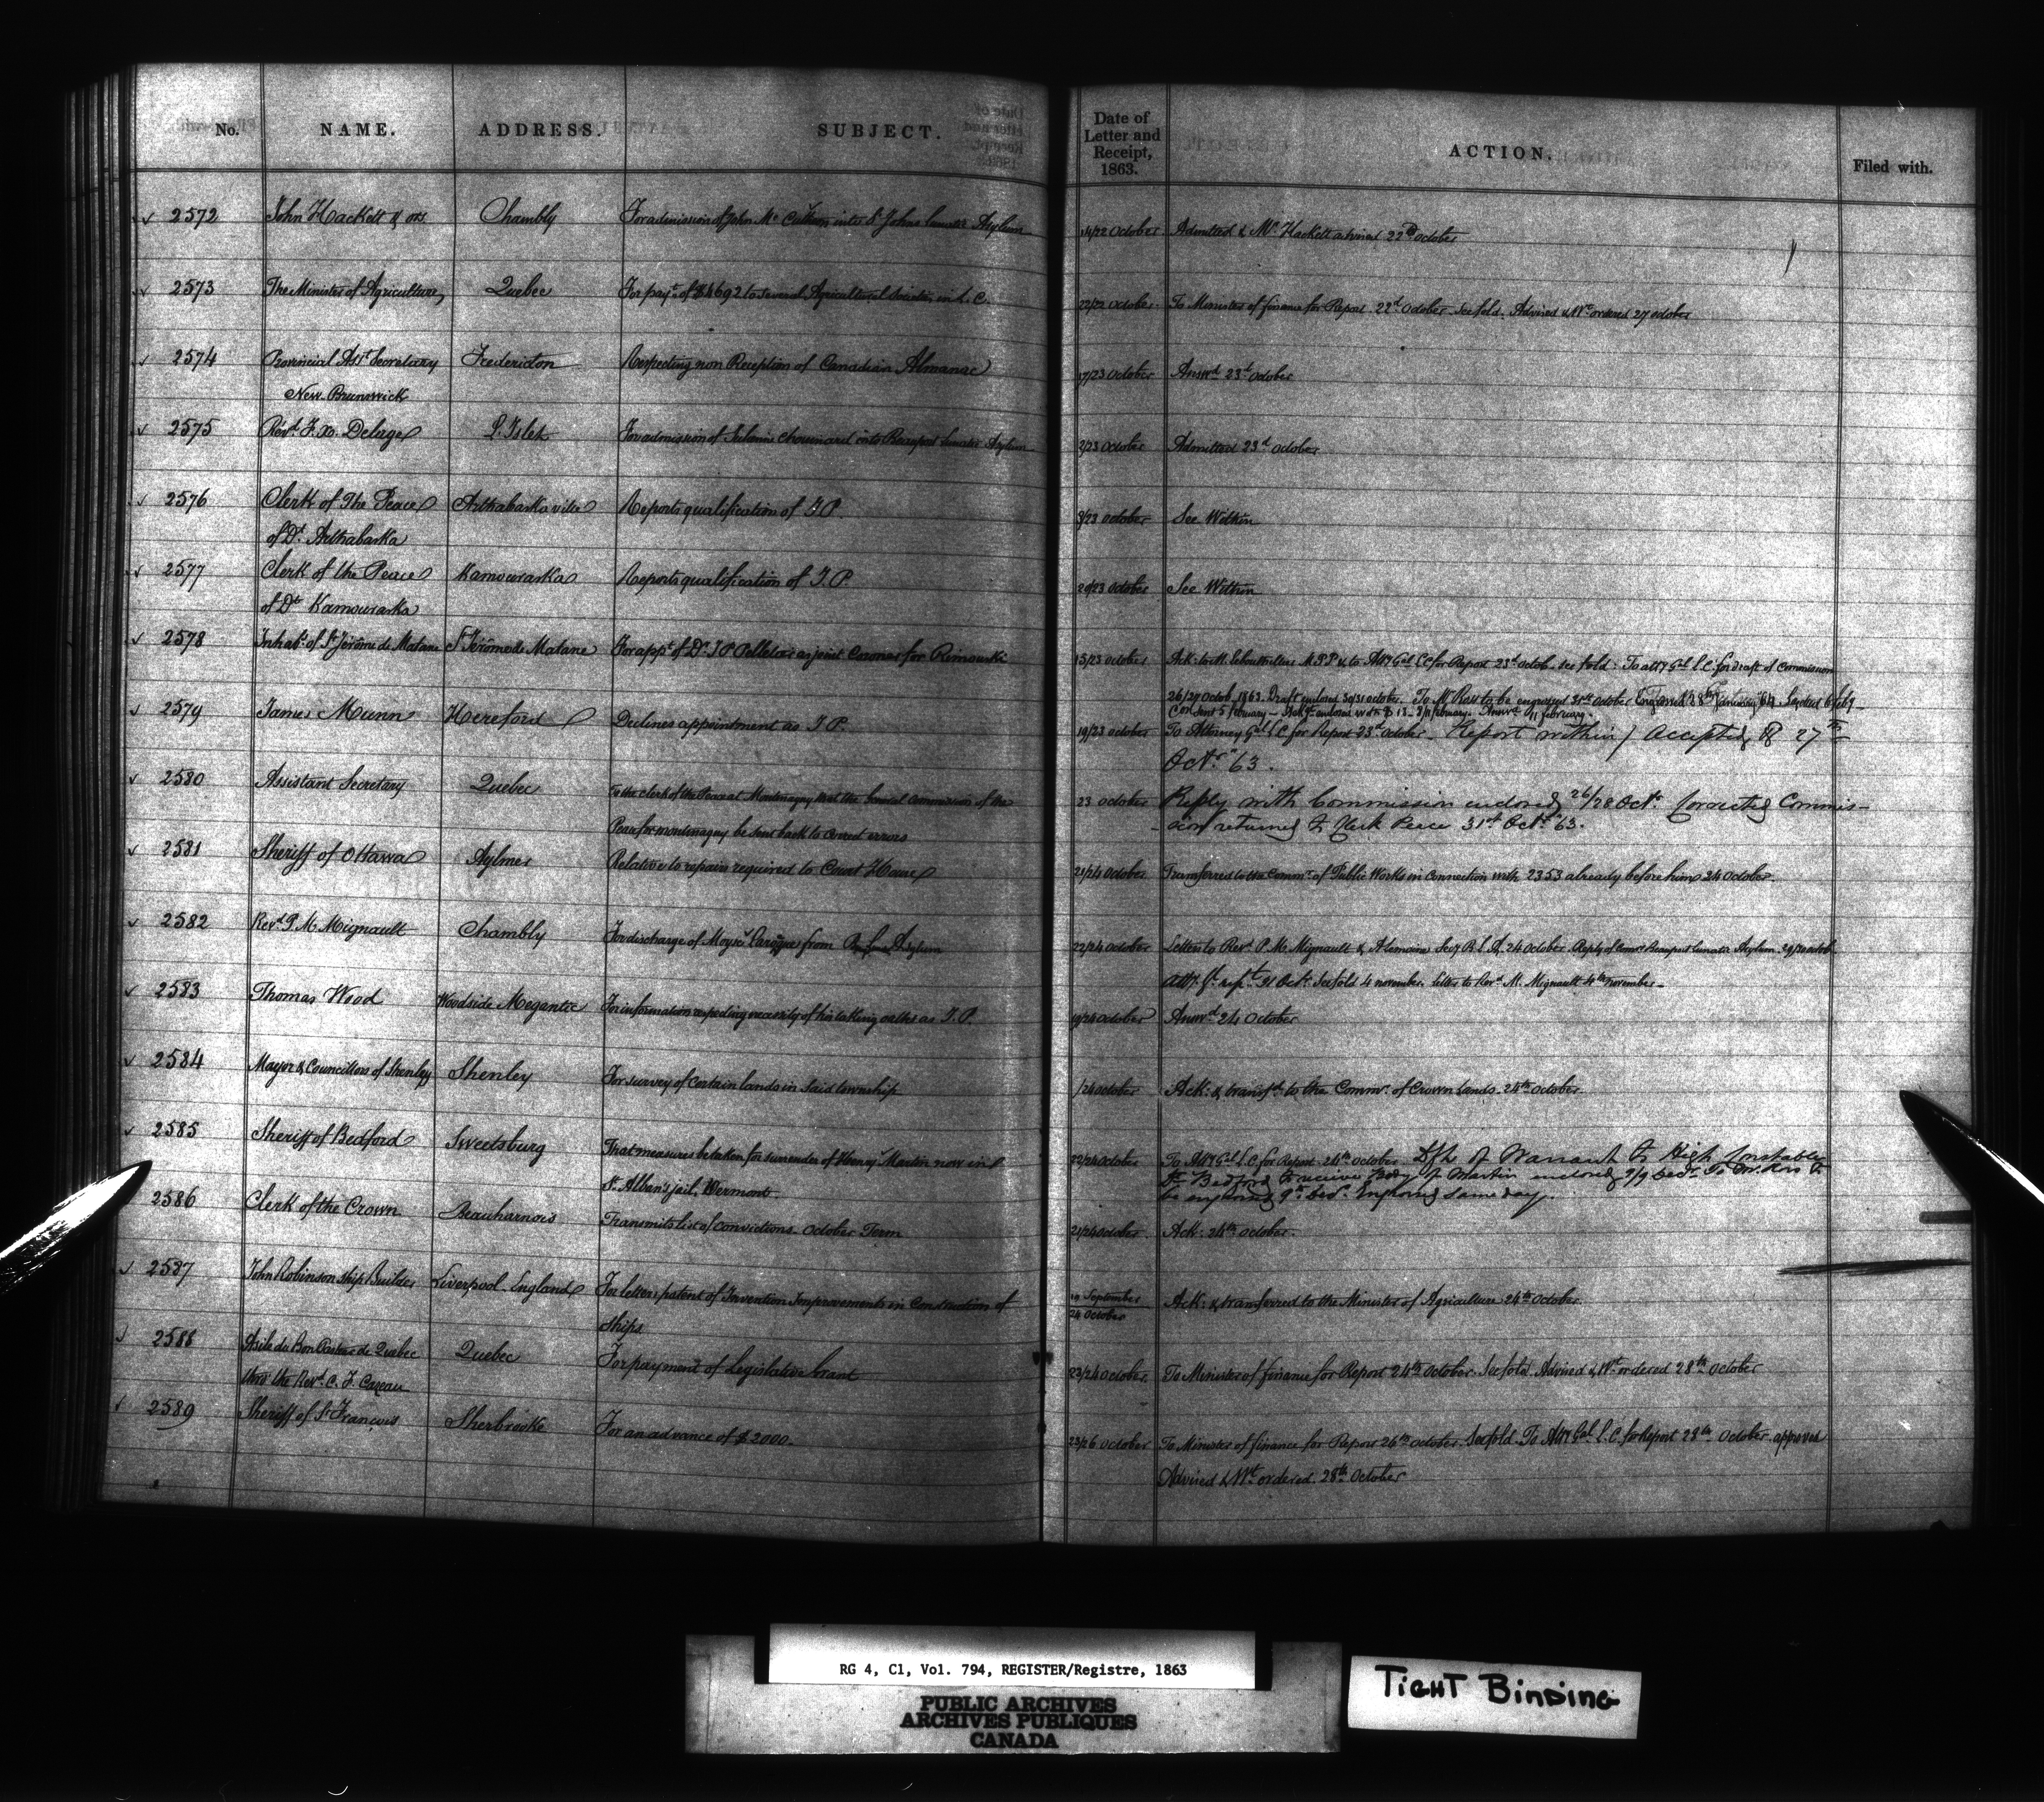 No. NAME. ADDRESS. SUBJECT. Date of Letter and Receipt, 1863. ACTION. Filed with.
2572 John Hackett & ors Chambly For admission of John Mc into St Johns Lunatic Asylum 14/22 October Admitted & Mr. Hackett advised 22d October
2573 The Minister of Agriculture, Quebec For payt. of $4692 to several Agricultural Societies in L. C. 22/22 October To Minister of finance for Report 22d October. See fold. Advised & Wt ordered 27 October
2574 Provincial Asst Secretary Fredericton Respecting non Reception of Canadian Almanac 17/23 October Answd 23d October
New Brunswick
2575 Revd. F. X. Delage L'Islet For admission of Chouinard into Beauport Lunatic Asylum 2/23 October Admitted 23d October
2576 Clerk of The Peace Arthabaskaville Reports qualification of J. P. 3/23 October See Within
of Dt. Arthabaska
2577 Clerk of the Peace Kamouraska Reports qualification of J. P. 20/23 October See Within
of Dt Kamouraska
2578 Inhabts. of St Jérôme de Matane St Jérôme de Matane For appt. of Dr. J P Pelletier as joint Coroner for Rimouski 15/23 October Ack: to M. M.P.P. & to Atty Gal L C for Report 23d Octob. See fold: To Atty Gal L. C. for draft of Commission
26/29 Octob. 1863. Draft enclosed 30/31 October. To Mr Ross to be engrossed 31st October Engrossed 28th January '64
Com sent 5 February enclosed February. Answd 11 February.
2579 James Munn Hereford Declines appointment as J. P. 19/23 October To Attorney Gal L C for Report 23d October - Report within / Accepted 27th
Octr. '63.
2580 Assistant Secretary Quebec To the clerk of the Peace at Montmagny that the General Commission of the 23 October Reply with Commission enclosed 26/28 Octr. Corrected Commis-
Peace for Montmagny be sent back to correct errors -sion returned to Clerk Peace 31st Octr '63.
2581 Sheriff of Ottawa Aylmer Relative to repairs required to Court House 21/24 October Transferred to the Commr. of Public Works in connection with 2353 already before him 24 October.
2582 Revd P. M. Mignault Chambly For discharge of Moyse from Asylum 22/24 October Letter to Revd. P. M. Mignault & A Lemoine Secy B. L. A. 24 October Reply of Beauport Lunatic Asylum 29/30 Octob
Atty. Gl. rept. 31 Octr. See fold 4 November. Letter to Revd. M. Mignault 4th November -
2583 Thomas Wood Woodside Megantic For information respecting necessity of his taking oaths as J. P. 19/24 October Answd 24 October
2584 Mayor & Councillors of Shenley Shenley For survey of certain lands in said township /24 October Ack: & transfd. to the Commr. of Crown Lands 24th October.
2585 Sheriff of Bedford Sweetsburg That measures be taken for surrender of Henry Martin now in 22/24 October To Atty Gal L C for Report 24th October Dft of Warrant to High Constable
St. Alban's jail, Vermont of Bedford to receive body of Martin enclosed 2/9 Decr. To Mr. Ross to
be engrossed 9th Decr. Engrossed same day.
2586 Clerk of the Crown Beauharnois Transmits list of convictions October Term 21/24 October Ack: 24th October.
2587 John Robinson Ship Builder Liverpool England For letters patent of Invention Improvements in Construction of September Ack: & transferred to the Minister of Agriculture 24th October
Ships 24 October
2588 Asile du Bon Pasteur de Quebec Quebec For payment of Legislative Grant 22/24 October To Minister of finance for Report 24th October. See fold. Advised & Wt ordered 28th October
thro' the Revd. C. F. Cazeau
2589 Sheriff of St Francis Sherbrooke For an advance of $2000. 23/26 October To Minister of finance for Report 26th October. See fold. To Atty Gal. L. C. for Report 28th October approved
Advised & Wt ordered 28th October
RG 4, C1, Vol. 794, REGISTER/Registre, 1863
PUBLIC ARCHIVES
ARCHIVES PUBLIQUES
CANADA
TIGHT BINDING